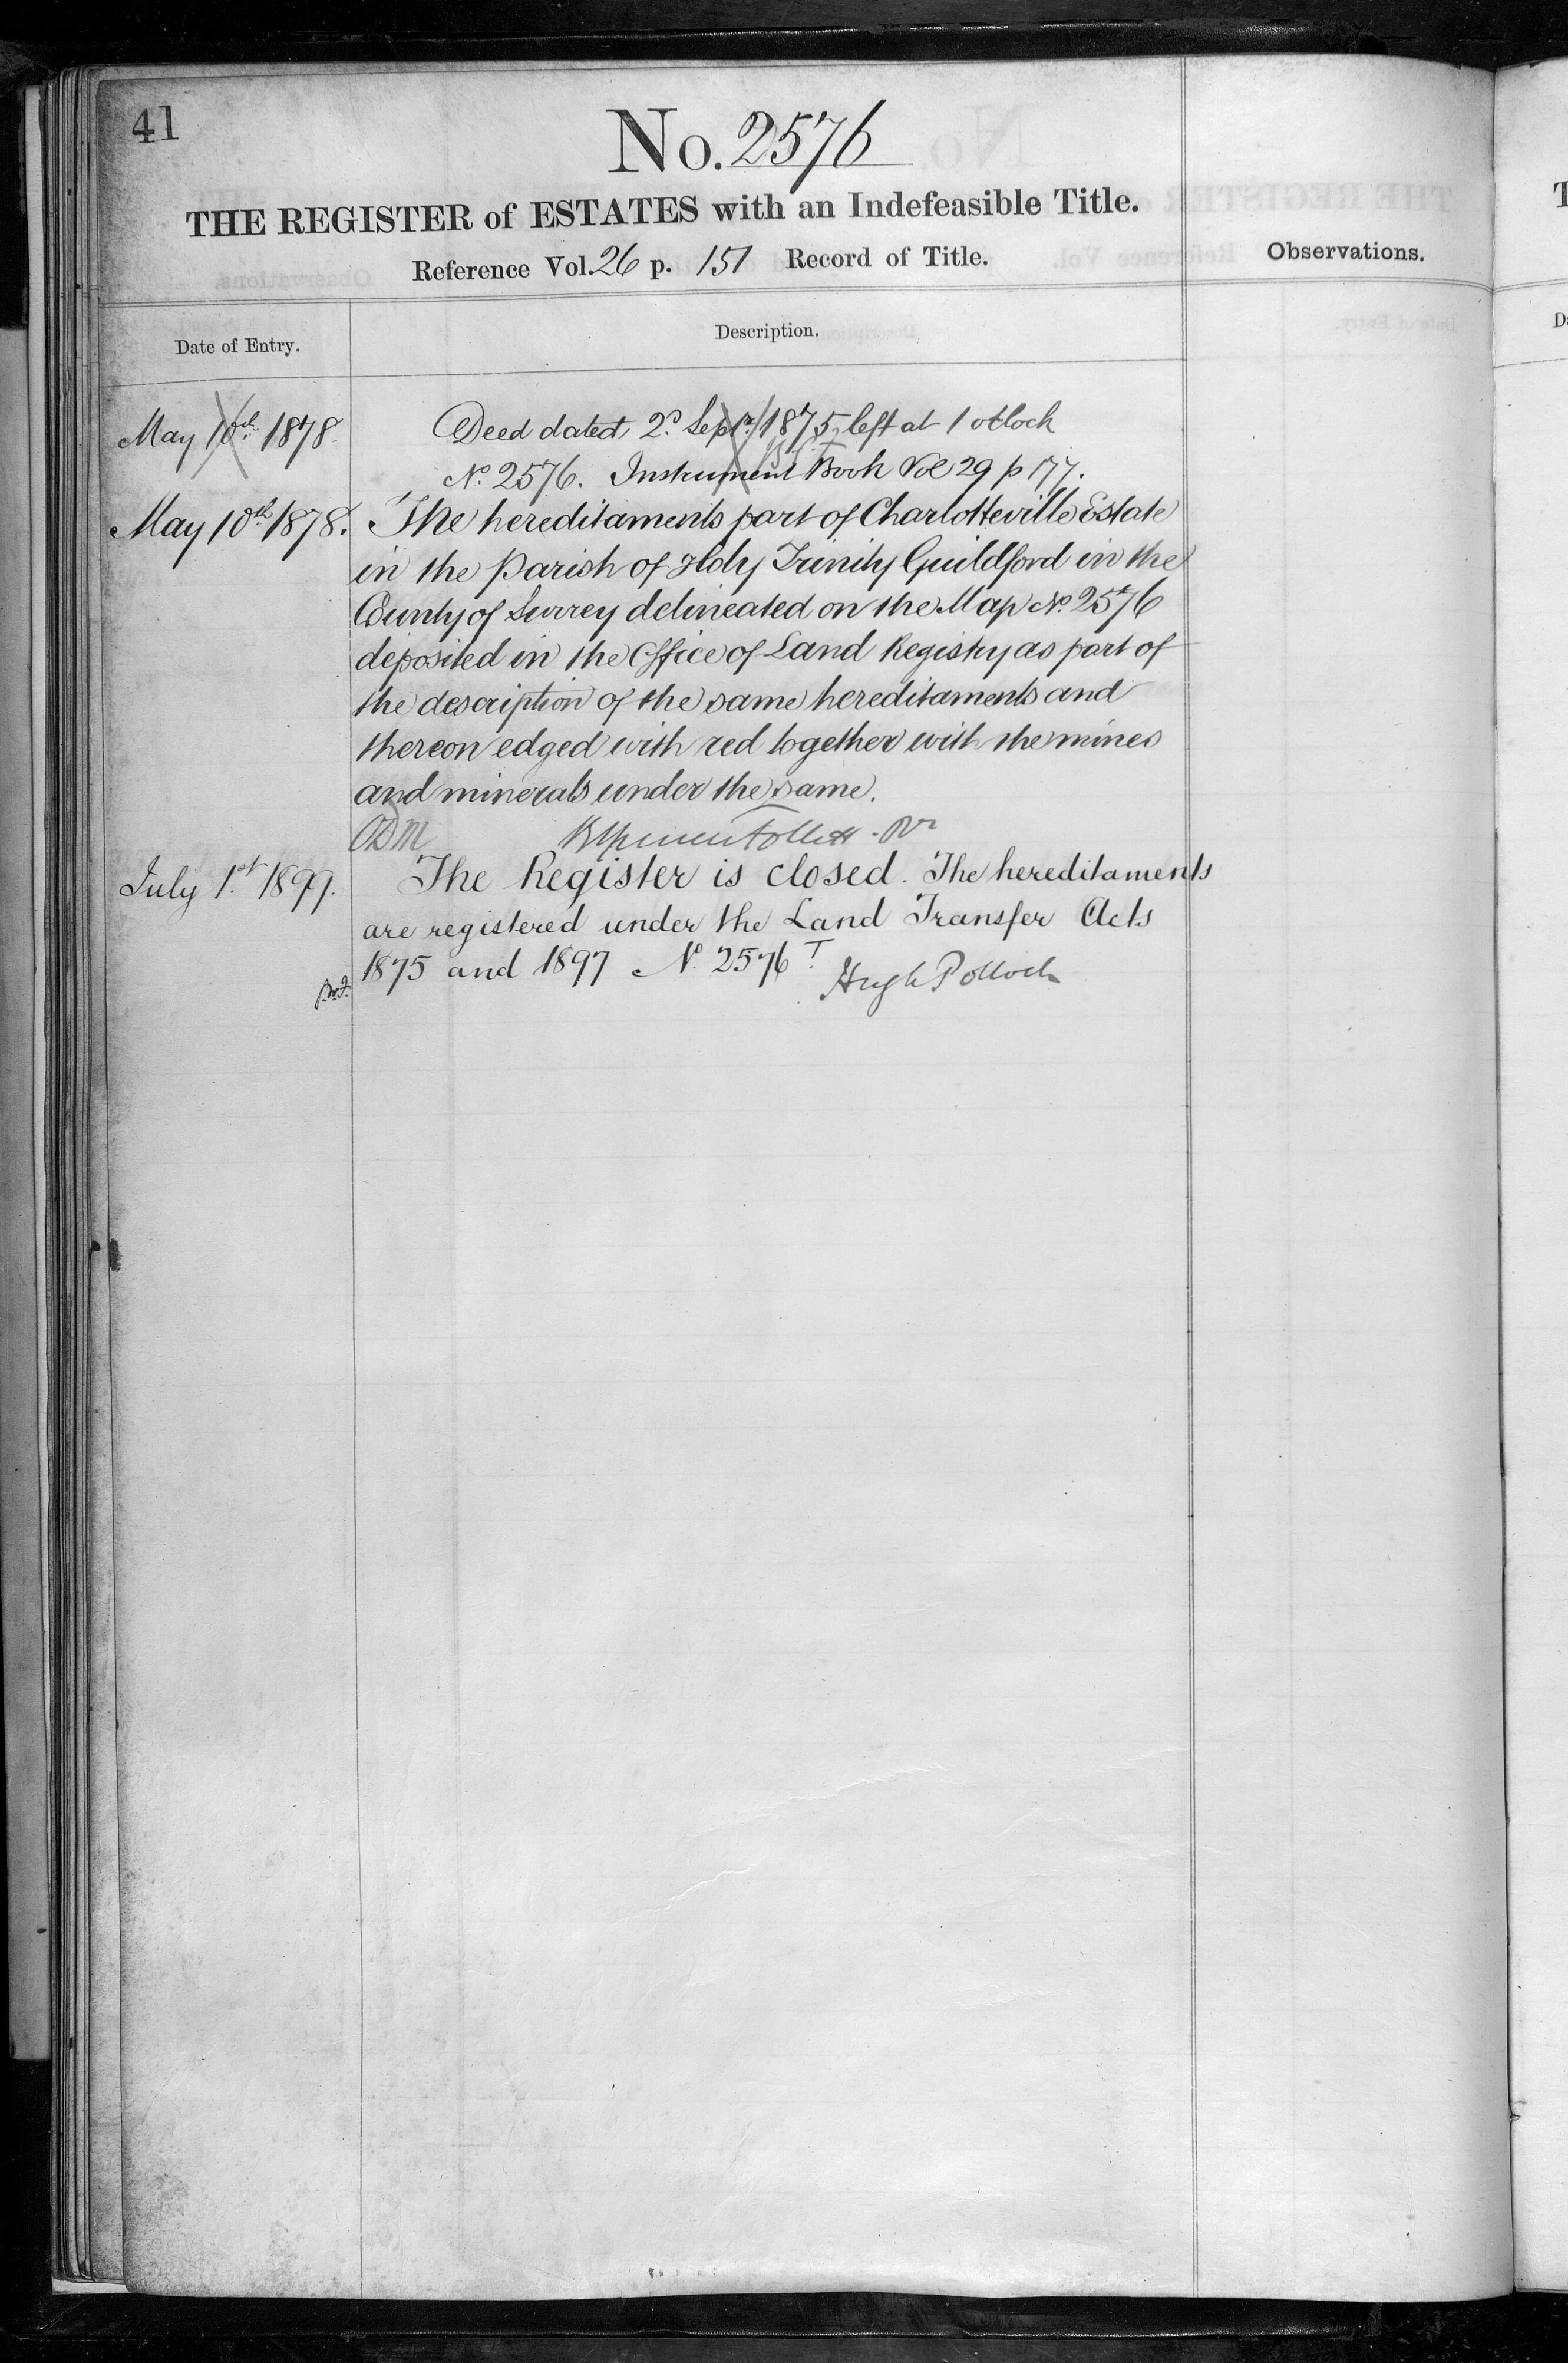 41
No. 2576
THE REGISTER of ESTATES with an Indefeasible Title.
Reference Vol. 26 p. 151 Record of Title.
Observations.
Date of Entry.
Description.
May 10th 1878 Deed dated 2d Septr 1875 left at 1 o'clock
No. 2576. Instrument Book Vol 29 p 177.
May 10th 1878. The hereditaments part of Charlotteville Estate
in the Parish of Holy Trinity Guildford in the
County of Surrey delineated on the Map No. 2576
deposited in the Office of Land Registry as part of
the description of the same hereditaments and
thereon edged with red together with the mines
and minerals under the same.
ODM Follett - Rr
July 1st 1899. The Register is closed. The hereditaments
are registered under the Land Transfer Acts
1875 and 1897 No. 2576 T.
Hugh Pollock